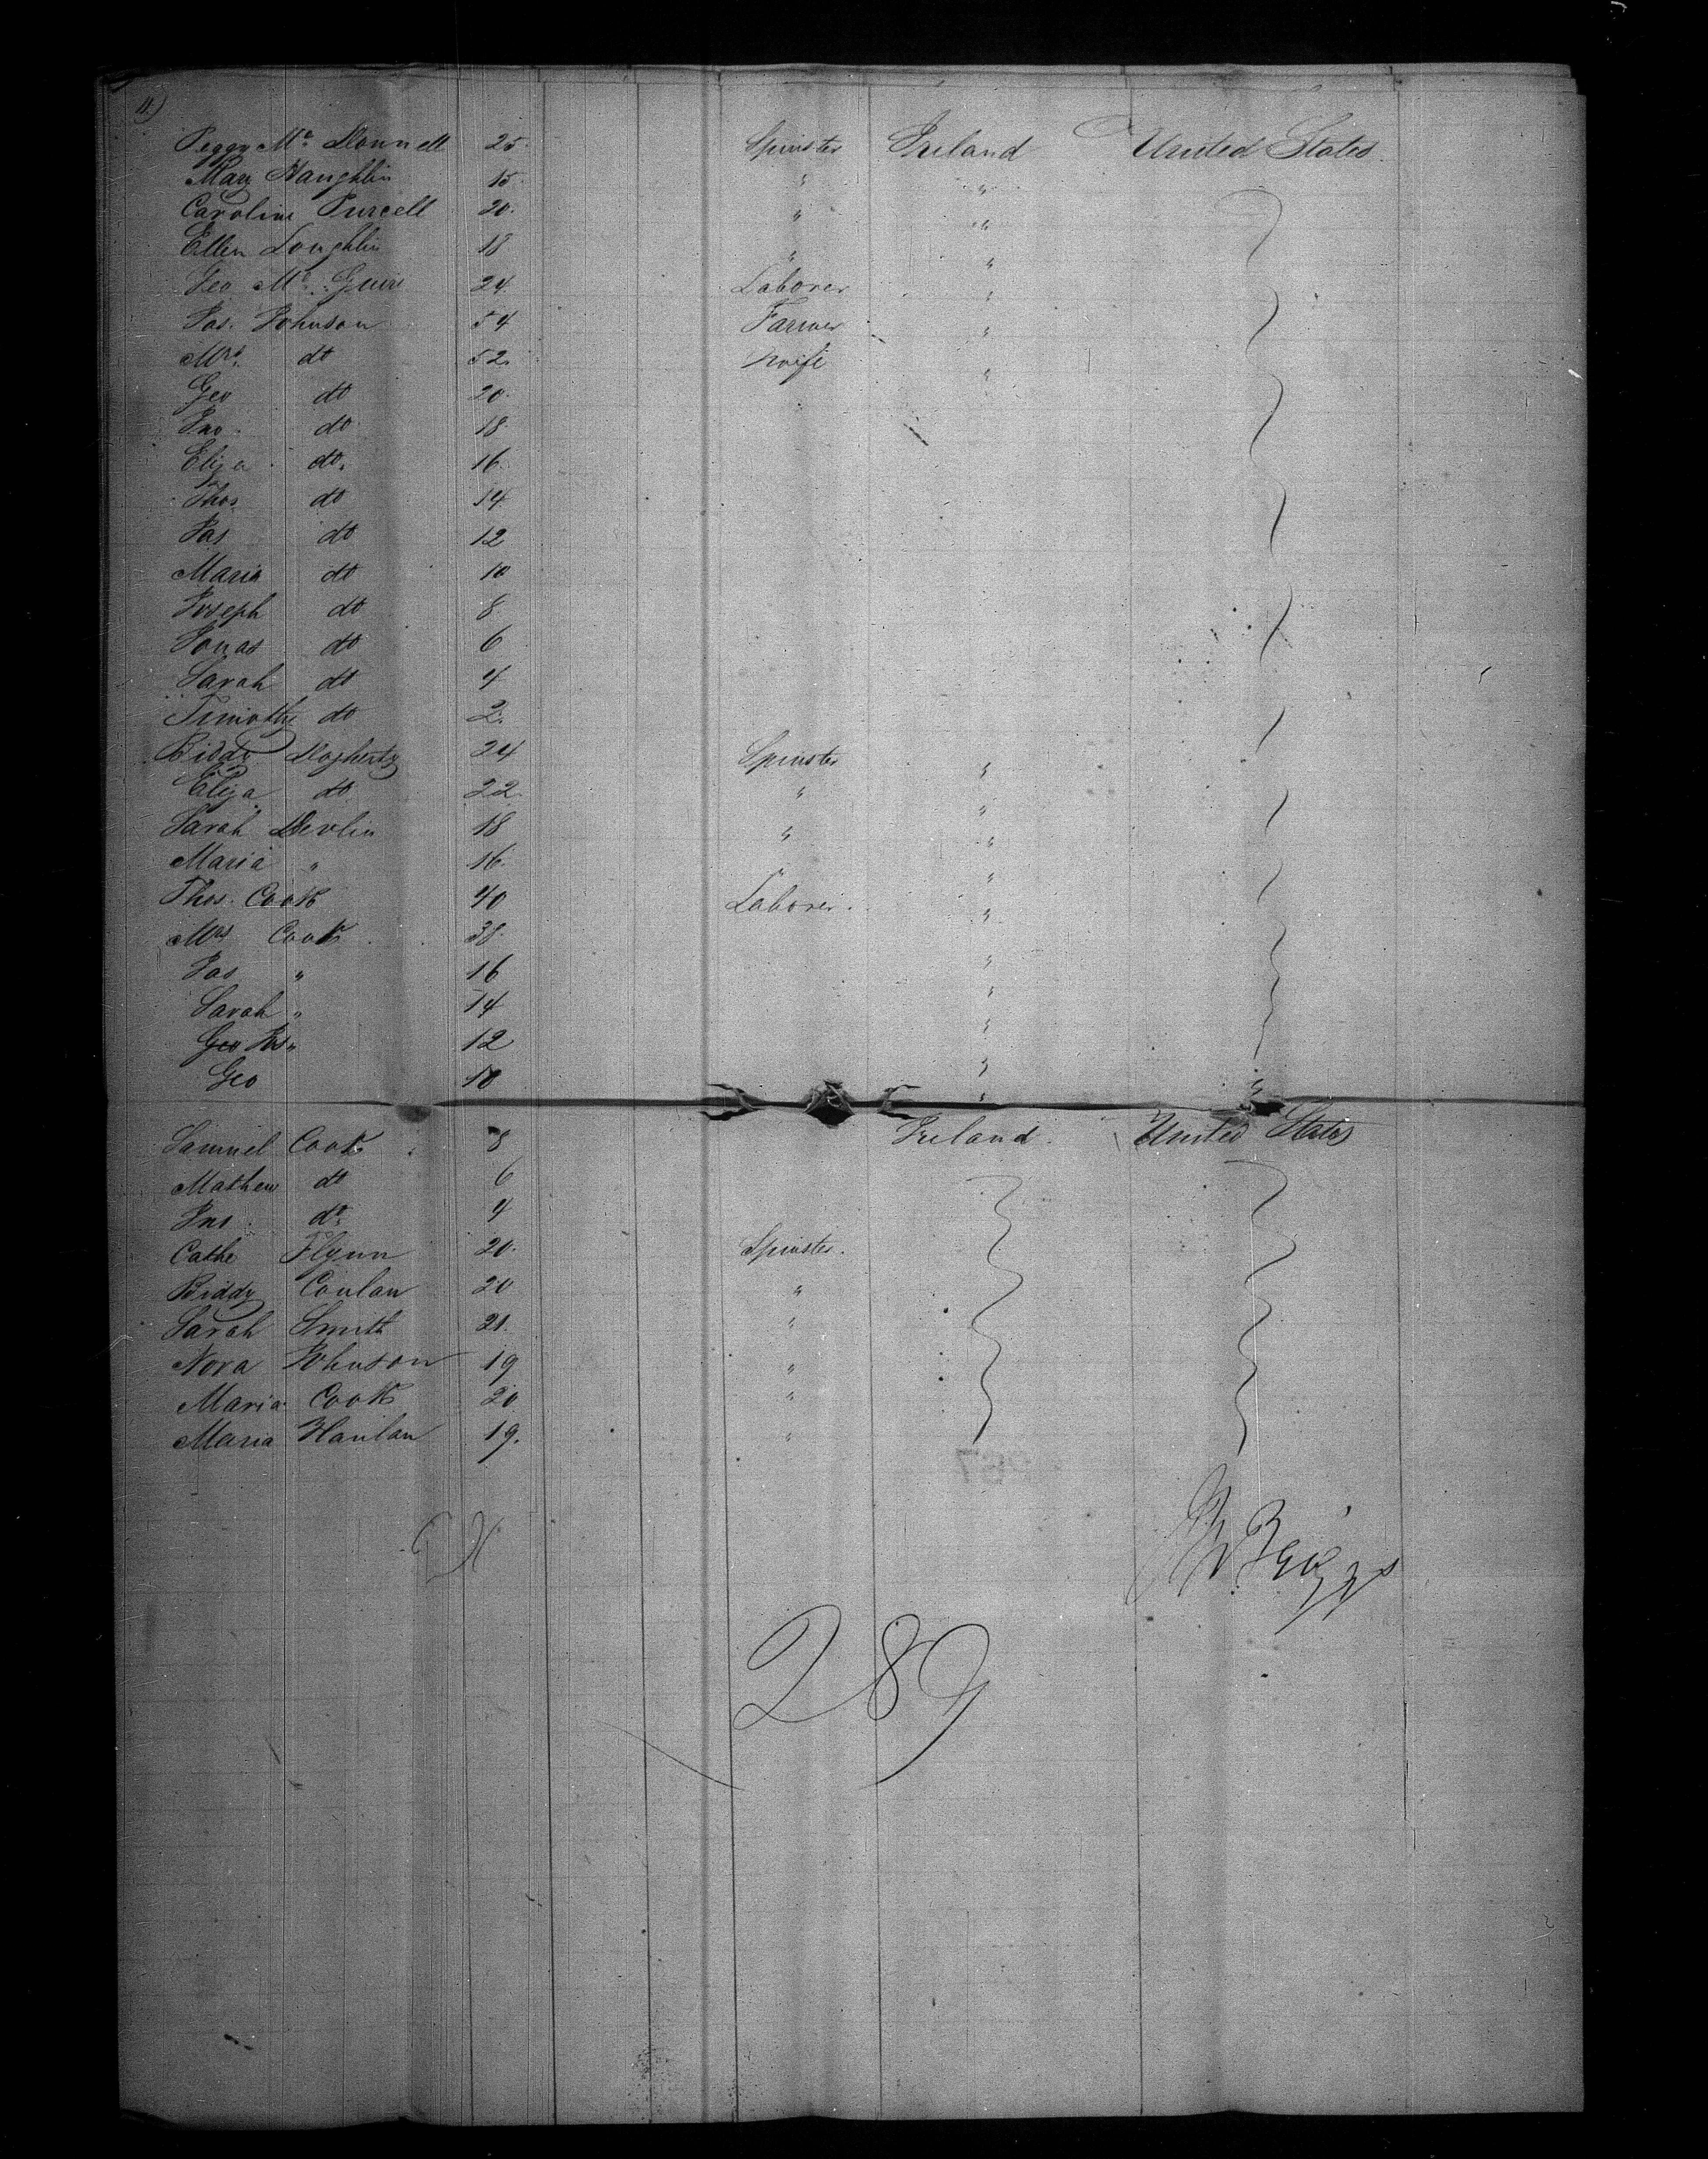 11)
Peggy Mc Donnell 25 Spinster Ireland United States
Mary Haughlin 15 " "
Caroline Purcell 20. " "
Ellen Loughlin 18 " "
Geo Mc Guire 24 Laborer "
Jas. Johnson 54 Farmer "
Mrs. do 52. Wife "
Geo do 20.
Jno. do 18
Eliza do. 16.
Thos do 14
Jas do 12
Maria do 10
Joseph do 8
Jonas do 6
Sarah do 4
Timothy do 2.
Biddy Dogherty 24 Spinster "
Eliza do 22. " "
Sarah Devlin 18 " "
Maria " 16. "
Thos. Cook 40 Laborer. "
Mrs Cook 38. "
Jas " 16 "
Sarah " 14 "
Geo Jos " 12 "
Geo 10 " "
Samuel Cook 8 Ireland. United States
Mathew do 6
Jno. do. 4
Cathe Flynn 20. Spinster.
Biddy Conlan 20 "
Sarah Smith 21. "
Nora Johnson 19 "
Maria Cook 20 "
Maria Hanlan 19. "
Briggs
289